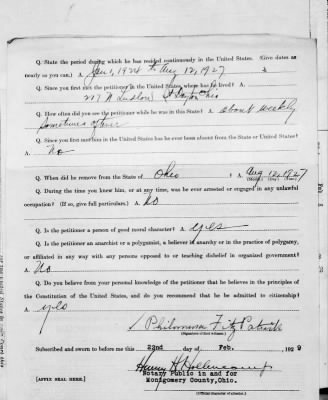 Q. State the period during which he has resided continuously in the United States. (Give dates as
nearly as you can.) A Jan 1, 1924 to Aug 12, 1927
Q. Since you first met the petitioner in the United States, where has he lived? A
217 N Ludlow Dayton Ohio
Q. How often did you see the petitioner while he was in this State? A about weekly
sometimes oftener
Q. Since you first met him in the United States has he ever been absent from the State or United States?
A. No
Q. When did he remove from the State of Ohio ? A Aug 12, 1927
(Month.) (Day.) (Year.)
Q. During the time you knew him, or at any time, was he ever arrested or engaged in any unlawful
occupation? (If so, give full particulars.) A. No
Q. Is the petitioner a person of good moral character? A yes
Q. Is the petitioner an anarchist or a polygamist, a believer in anarchy or in the practice of polygamy,
or affiliated in any way with any persons opposed to or teaching disbelief in organized government?
A. No
Q. Do you believe from your personal knowledge of the petitioner that he believes in the principles of
the Constitution of the United States, and do you recommend that he be admitted to citizenship?
A. yes
Philomena FitzPatrick
Subscribed and sworn to before me this 22nd day of Feb. 1929
Notary Public in and for
Montgomery County, Ohio.
[AFFIX SEAL HERE.]
(Official character of attestor.)